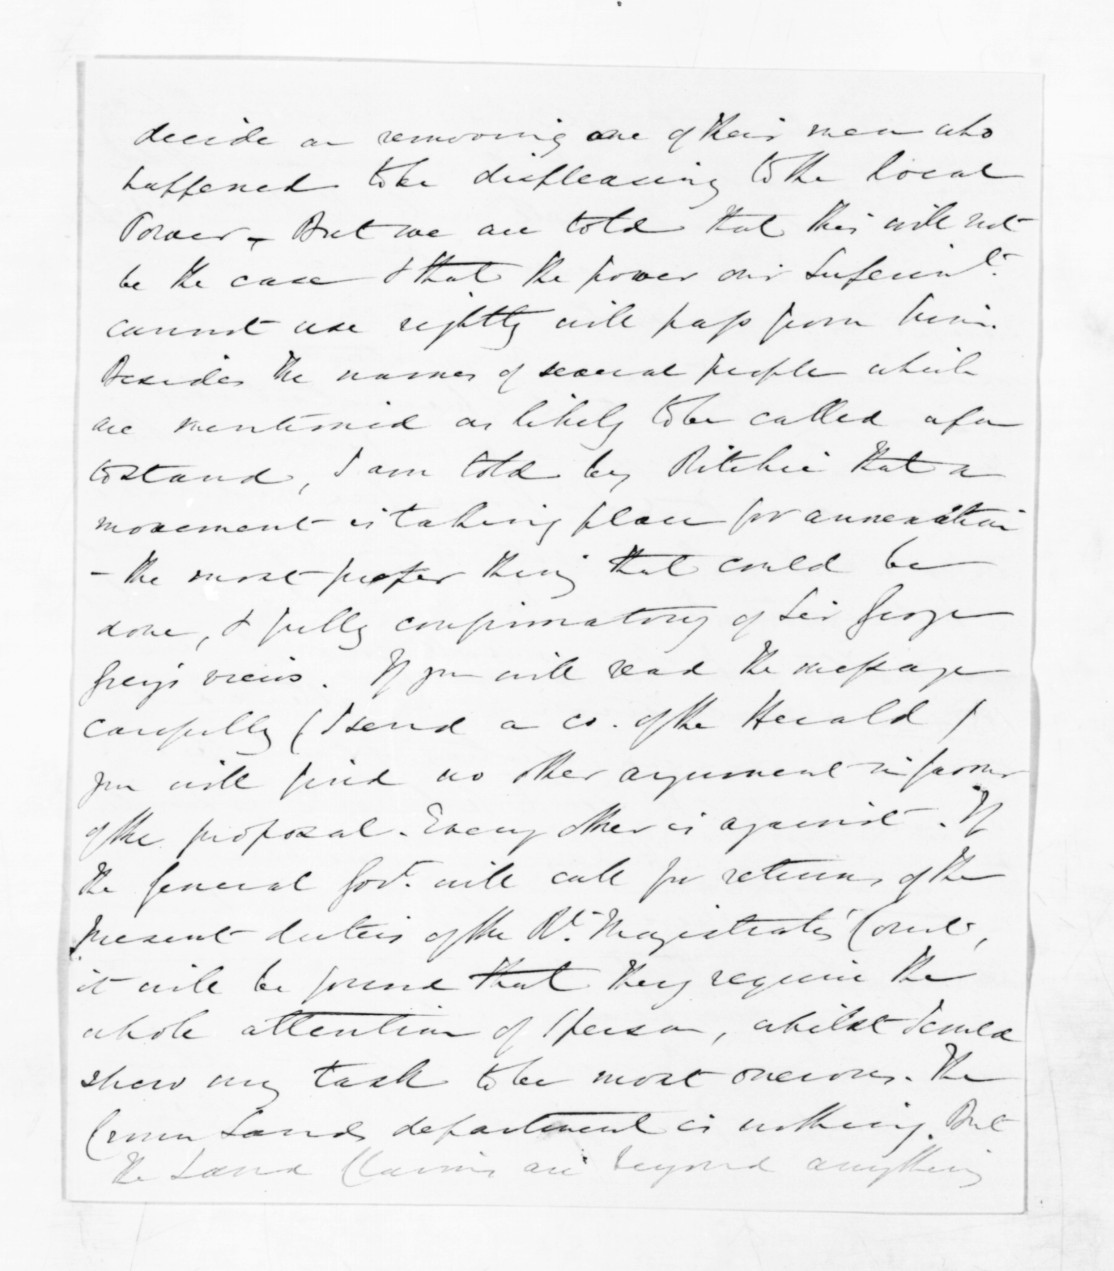 decide on removing one of their men who
happened to be displeasing to the Local
Power. But we are told that this will not
be the case & that the power our Superint.
cannot use rightly will pass from him.
Besides the names of several people which
are mentioned as likely to be called upon
to stand, I am told by Ritchie that a
movement is taking place for annexation
- the most proper thing that could be
done, & fully confirmatory of Sir George
Grey's views. If you will read the message
carefully (I send a co. of the Herald)
you will find no other argument in favour
of the proposal. Every other is against. If
the General Govt. will call for returns of the
present duties of the Rt. Magistrate's Court,
it will be found that they require the
whole attention of 1 person, whilst I could
show my task to be most onerous. The
Crown Lands department is nothing. But
the Land Claims are beyond anything